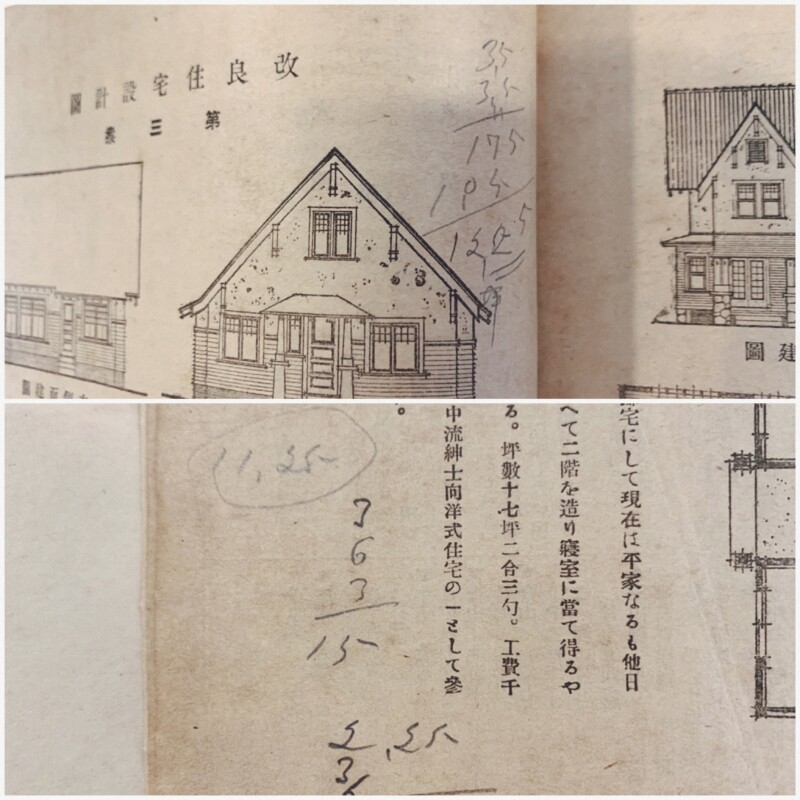 改良住宅設計圖
第三
3,5
3,5
175
105
12,25
側面建圖
建圖
宅にして現在は平家なるも他日
へて二階を造り寢室に當て得るや
る。坪數十七坪二合三勺。工費千
中流紳士向洋式住宅の一として參
。
11,25
3
6
3
15
2,25
3